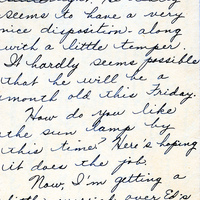 seems to have a very
nice disposition - along
with a little temper.
It hardly seems possible
that he will be a
month old this Friday.
How do you like
the sun lamp by
this time? Here's hoping
it does the job.
Now, I'm getting a
over Ed's